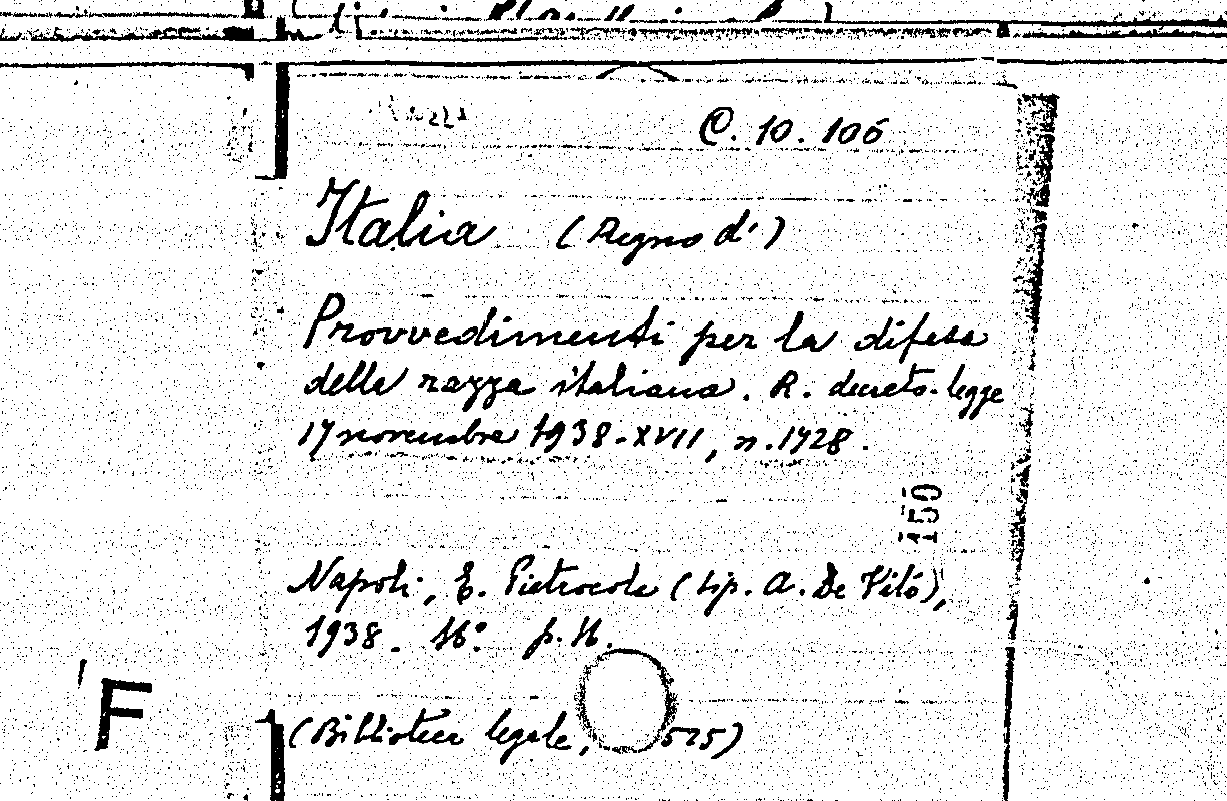 C. 10. 106
Italia (Regno d')
Provvedimenti per la difesa
della razza italiana. R. decreto-legge
17 novembre 1938-XVII, n. 1728.
150
Napoli, E. Pietrocola (tip. A. De Vito),
1938. 16° p. 16.
(Biblioteca legale, 525)
F